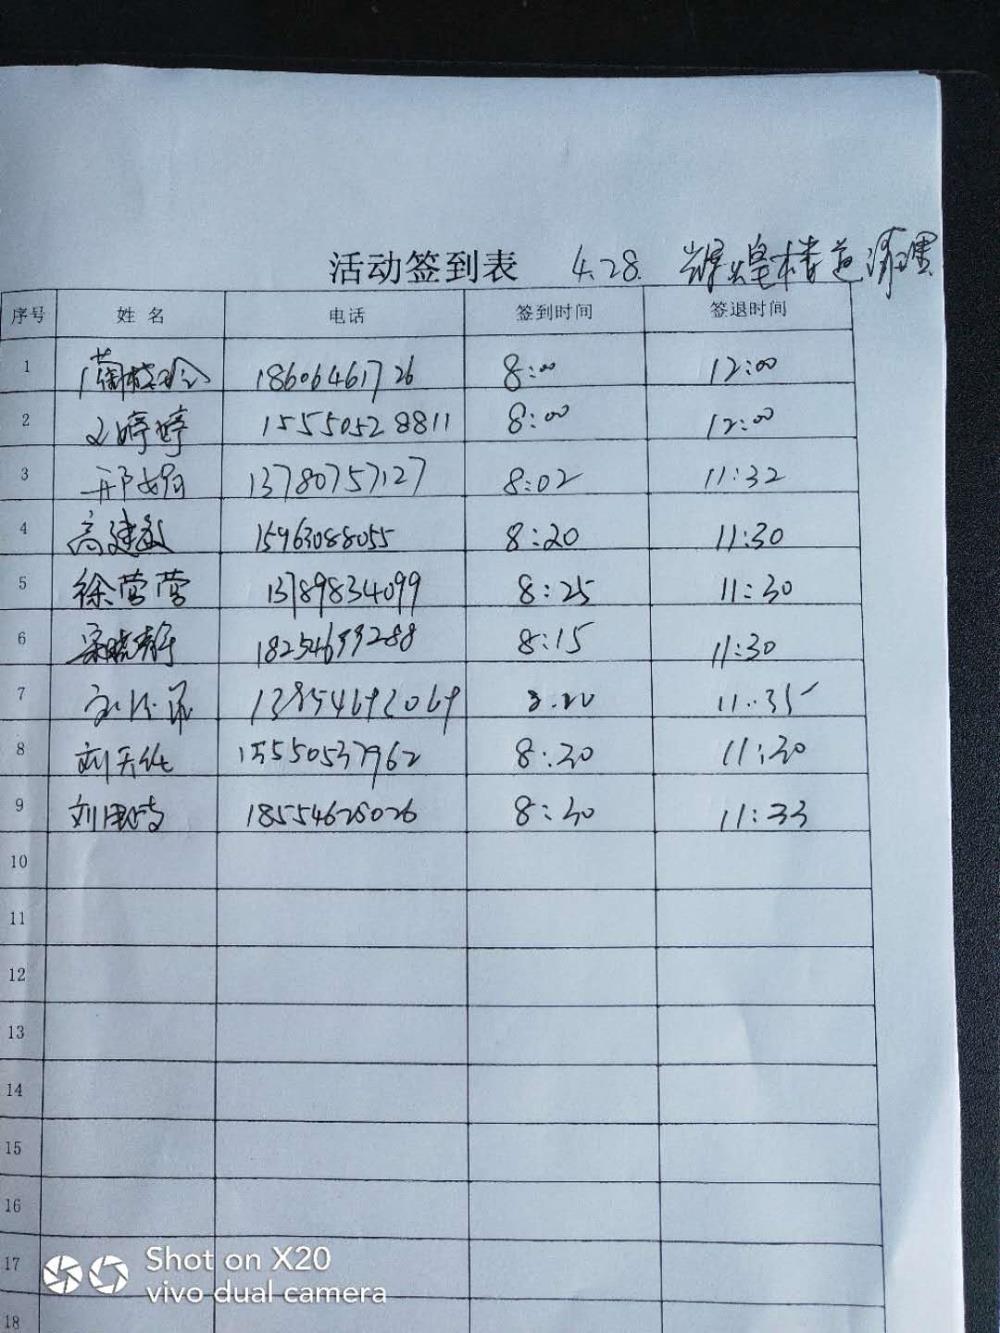 活动签到表 4.28. 辉煌楼道清理
序号 姓名 电话 签到时间 签退时间
1 18606461726 8:00 12:00
2 文婷婷 15550528811 8:00 12:00
3 邢娟 13780757127 8:02 11:32
4 高建敏 15963088055 8:20 11:30
5 徐莺莺 13789834099 8:25 11:30
6 18254699288 8:15 11:30
7 11:35
8 刘天佐 15550537962 8:30 11:30
9 刘 18554625026 8:30 11:33
10
11
12
13
14
15
16
17
18
Shot on X20
vivo dual camera